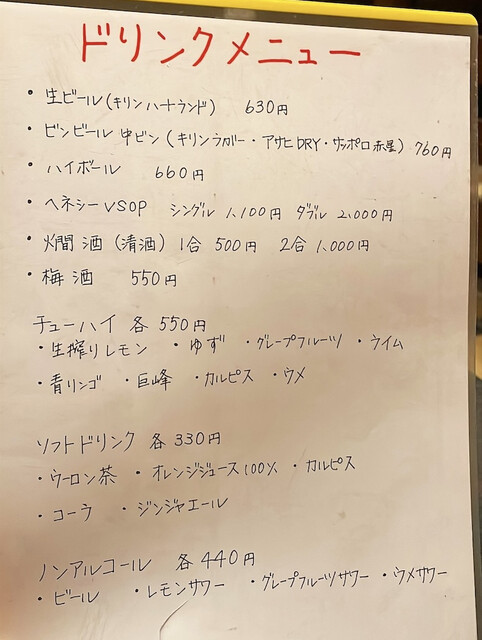 ドリンクメニュー
・生ビール(キリンハートランド) 630円
・ビンビール 中ビン (キリンラガー・アサヒDRY・サッポロ赤星) 760円
・ハイボール 660円
・ヘネシーVSOP シングル 1,100円 ダブル 2,000円
・燗酒(清酒) 1合 500円 2合 1,000円
・梅酒 550円
チューハイ 各550円
・生搾りレモン ・ゆず ・グレープフルーツ ・ライム
・青リンゴ ・巨峰 ・カルピス ・ウメ
ソフトドリンク 各330円
・ウーロン茶 ・オレンジジュース100% ・カルピス
・コーラ ・ジンジャエール
ノンアルコール 各440円
・ビール ・レモンサワー ・グレープフルーツサワー ・ウメサワー